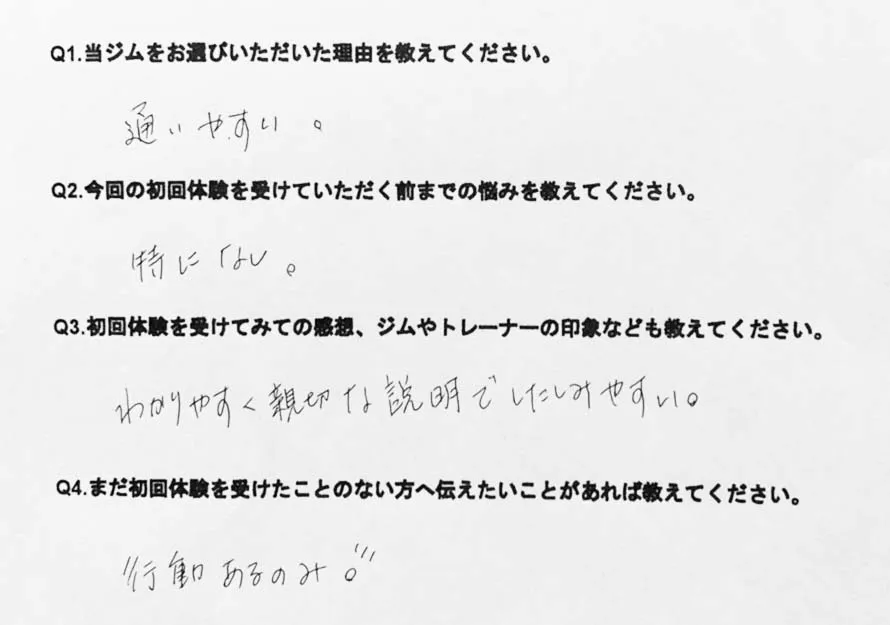 Q1.当ジムをお選びいただいた理由を教えてください。
通いやすい。
Q2.今回の初回体験を受けていただく前までの悩みを教えてください。
特にない。
Q3.初回体験を受けてみての感想、ジムやトレーナーの印象なども教えてください。
わかりやすく親切な説明でしたしみやすい。
Q4.まだ初回体験を受けたことのない方へ伝えたいことがあれば教えてください。
"行動あるのみ。"